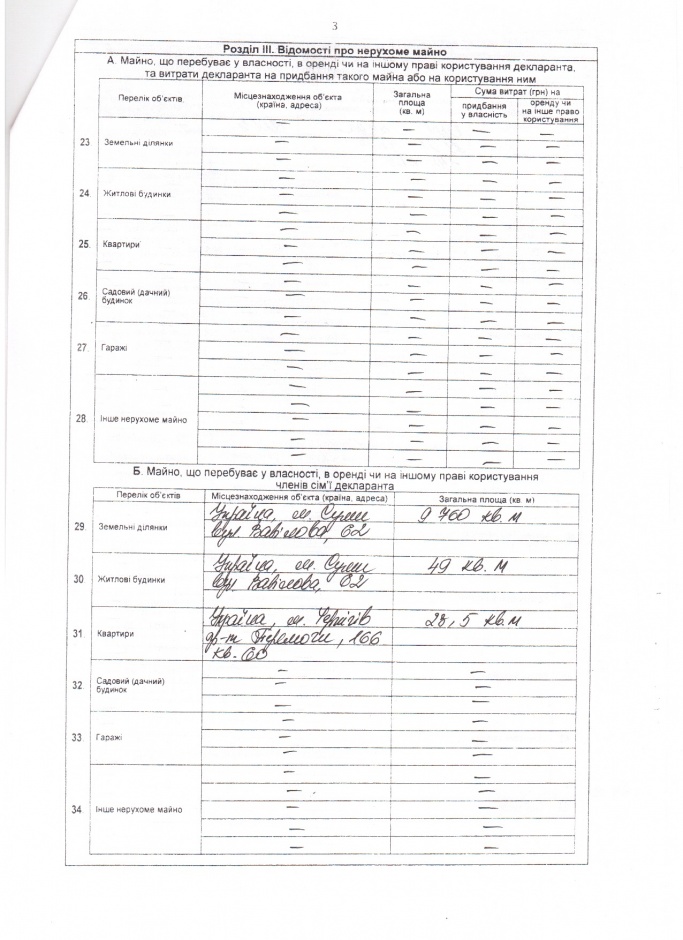 3
Розділ III. Відомості про нерухоме майно
А. Майно, що перебуває у власності, в оренді чи на іншому праві користування декларанта,
та витрати декларанта на придбання такого майна або на користування ним
Перелік об'єктів
Місцезнаходження об'єкта
(країна, адреса)
Загальна
площа
(кв. м)
Сума витрат (грн) на
придбання
у власність
оренду чи
на інше право
користування
23. Земельні ділянки
— — — —
— — — —
— — — —
24. Житлові будинки
— — — —
— — — —
— — — —
25. Квартири
— — — —
— — — —
— — — —
26. Садовий (дачний)
будинок
— — — —
— — — —
— — — —
27. Гаражі
— — — —
— — — —
— — — —
28. Інше нерухоме майно
— — — —
— — — —
— — — —
— — — —
— — — —
Б. Майно, що перебуває у власності, в оренді чи на іншому праві користування
членів сім'ї декларанта
Перелік об'єктів Місцезнаходження об'єкта (країна, адреса) Загальна площа (кв. м)
29. Земельні ділянки
Україна, м. Суми 9 760 кв. м
вул. Вавілова, 62
30. Житлові будинки
Україна, м. Суми 49 кв. м
вул. Вавілова, 62
31. Квартири
Україна, м. Чернігів 28,5 кв. м
пр-т Перемоги, 166
кв. 60
32. Садовий (дачний)
будинок
— —
— —
— —
33. Гаражі
— —
— —
— —
34. Інше нерухоме майно
— —
— —
— —
— —
— —